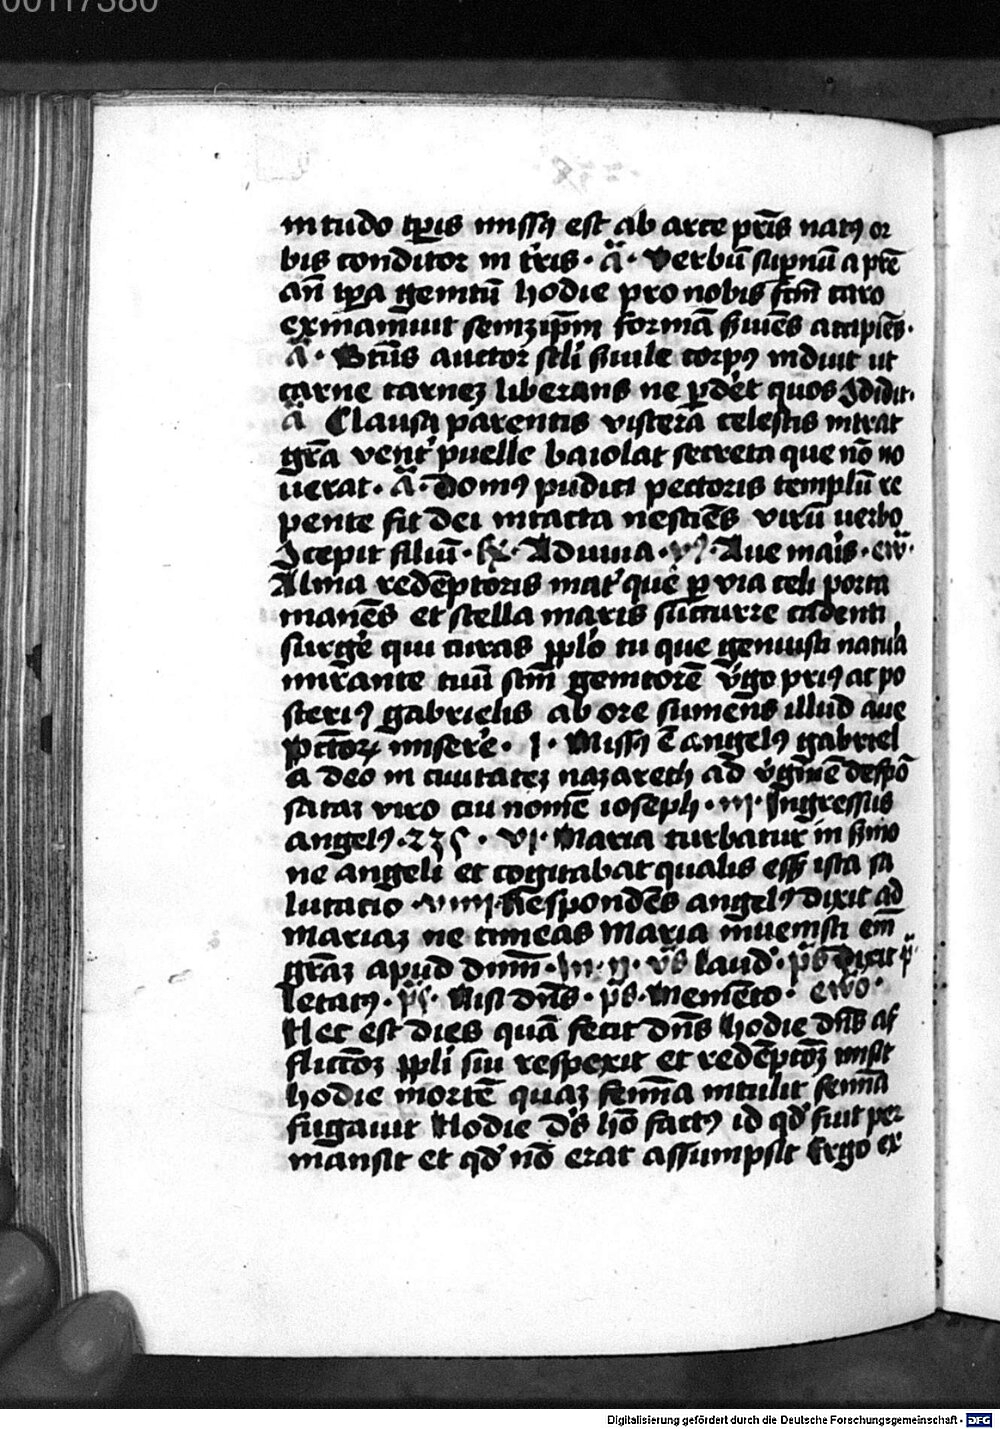 00117380
in tudo tp̄ris missꝰ est ab arce pr̄is natꝰ or
bis conditor in t'ris · a̅ · Verbū sup̄nū a pr̄e
an̄ tp̄a genitū hodie pro nobis fcm̄ caro
exinaniuit semꝫip̄m formā ẜuiēs accipiēs ·
a̅ · Btūs auctor scl̄i ẜuile corpꝰ induit ut
carne carneꝫ liberans ne ꝑdēt quos ꝯdidit ·
a̅ Clausa parentis viscera celestis intrat
gr̄a vent' puelle baiolat secreta que nō no
uerat · a̅ · Domꝰ pudici pectoris templū re
pente fit dei intacta nesciēs virū uerbo
ꝯcepit filiū · Aduina · Aue maris · ew̄ ·
Alma redēptoris mat' que ꝑ via celi porta
manēs et stella maris succurre cadenti
surge' qui curas pplo tu que genuisti natura
mirante tuū scm̄ genitorē v'go priꝰ ac po
steriꝰ gabrielis ab ore sumēns illud aue
pctōꝝ miserē · j · Missꝰ ē angelꝰ gabriel
a deo in ciuitateꝫ nazareth ad v'ginē despō
sataꝫ viro cui nomē ioseph · iij · Ingressus
angelꝰ · 235 · vj · Maria turbatur in ẜmo
ne angeli et cogitabat qualis ess̄ ista sa
lutacio · viiij · Respondēs angelꝰ dixit ad
mariaꝫ ne timeas Maria inuenisti em̄
gr̄aꝫ apud dnm̄ · In · ij · v̄s laud' · p̄s Dixit p̄
letatꝰ · p̄s · Nisi dn̄s · p̄s · Memēto · ewo ·
Hec est dies quā fecit dn̄s hodie dn̄s af
flictōꝫ ppl̄i sui respexit et redēptōꝫ misit
hodie mortē quaꝫ femīa intulit femīa
fugauit Hodie ds̄ hō factꝰ id qd' fuit per
mansit et qd' nō erat assumpsit Ergo ex
Digitalisierung gefördert durch die Deutsche Forschungsgemeinschaft · DFG